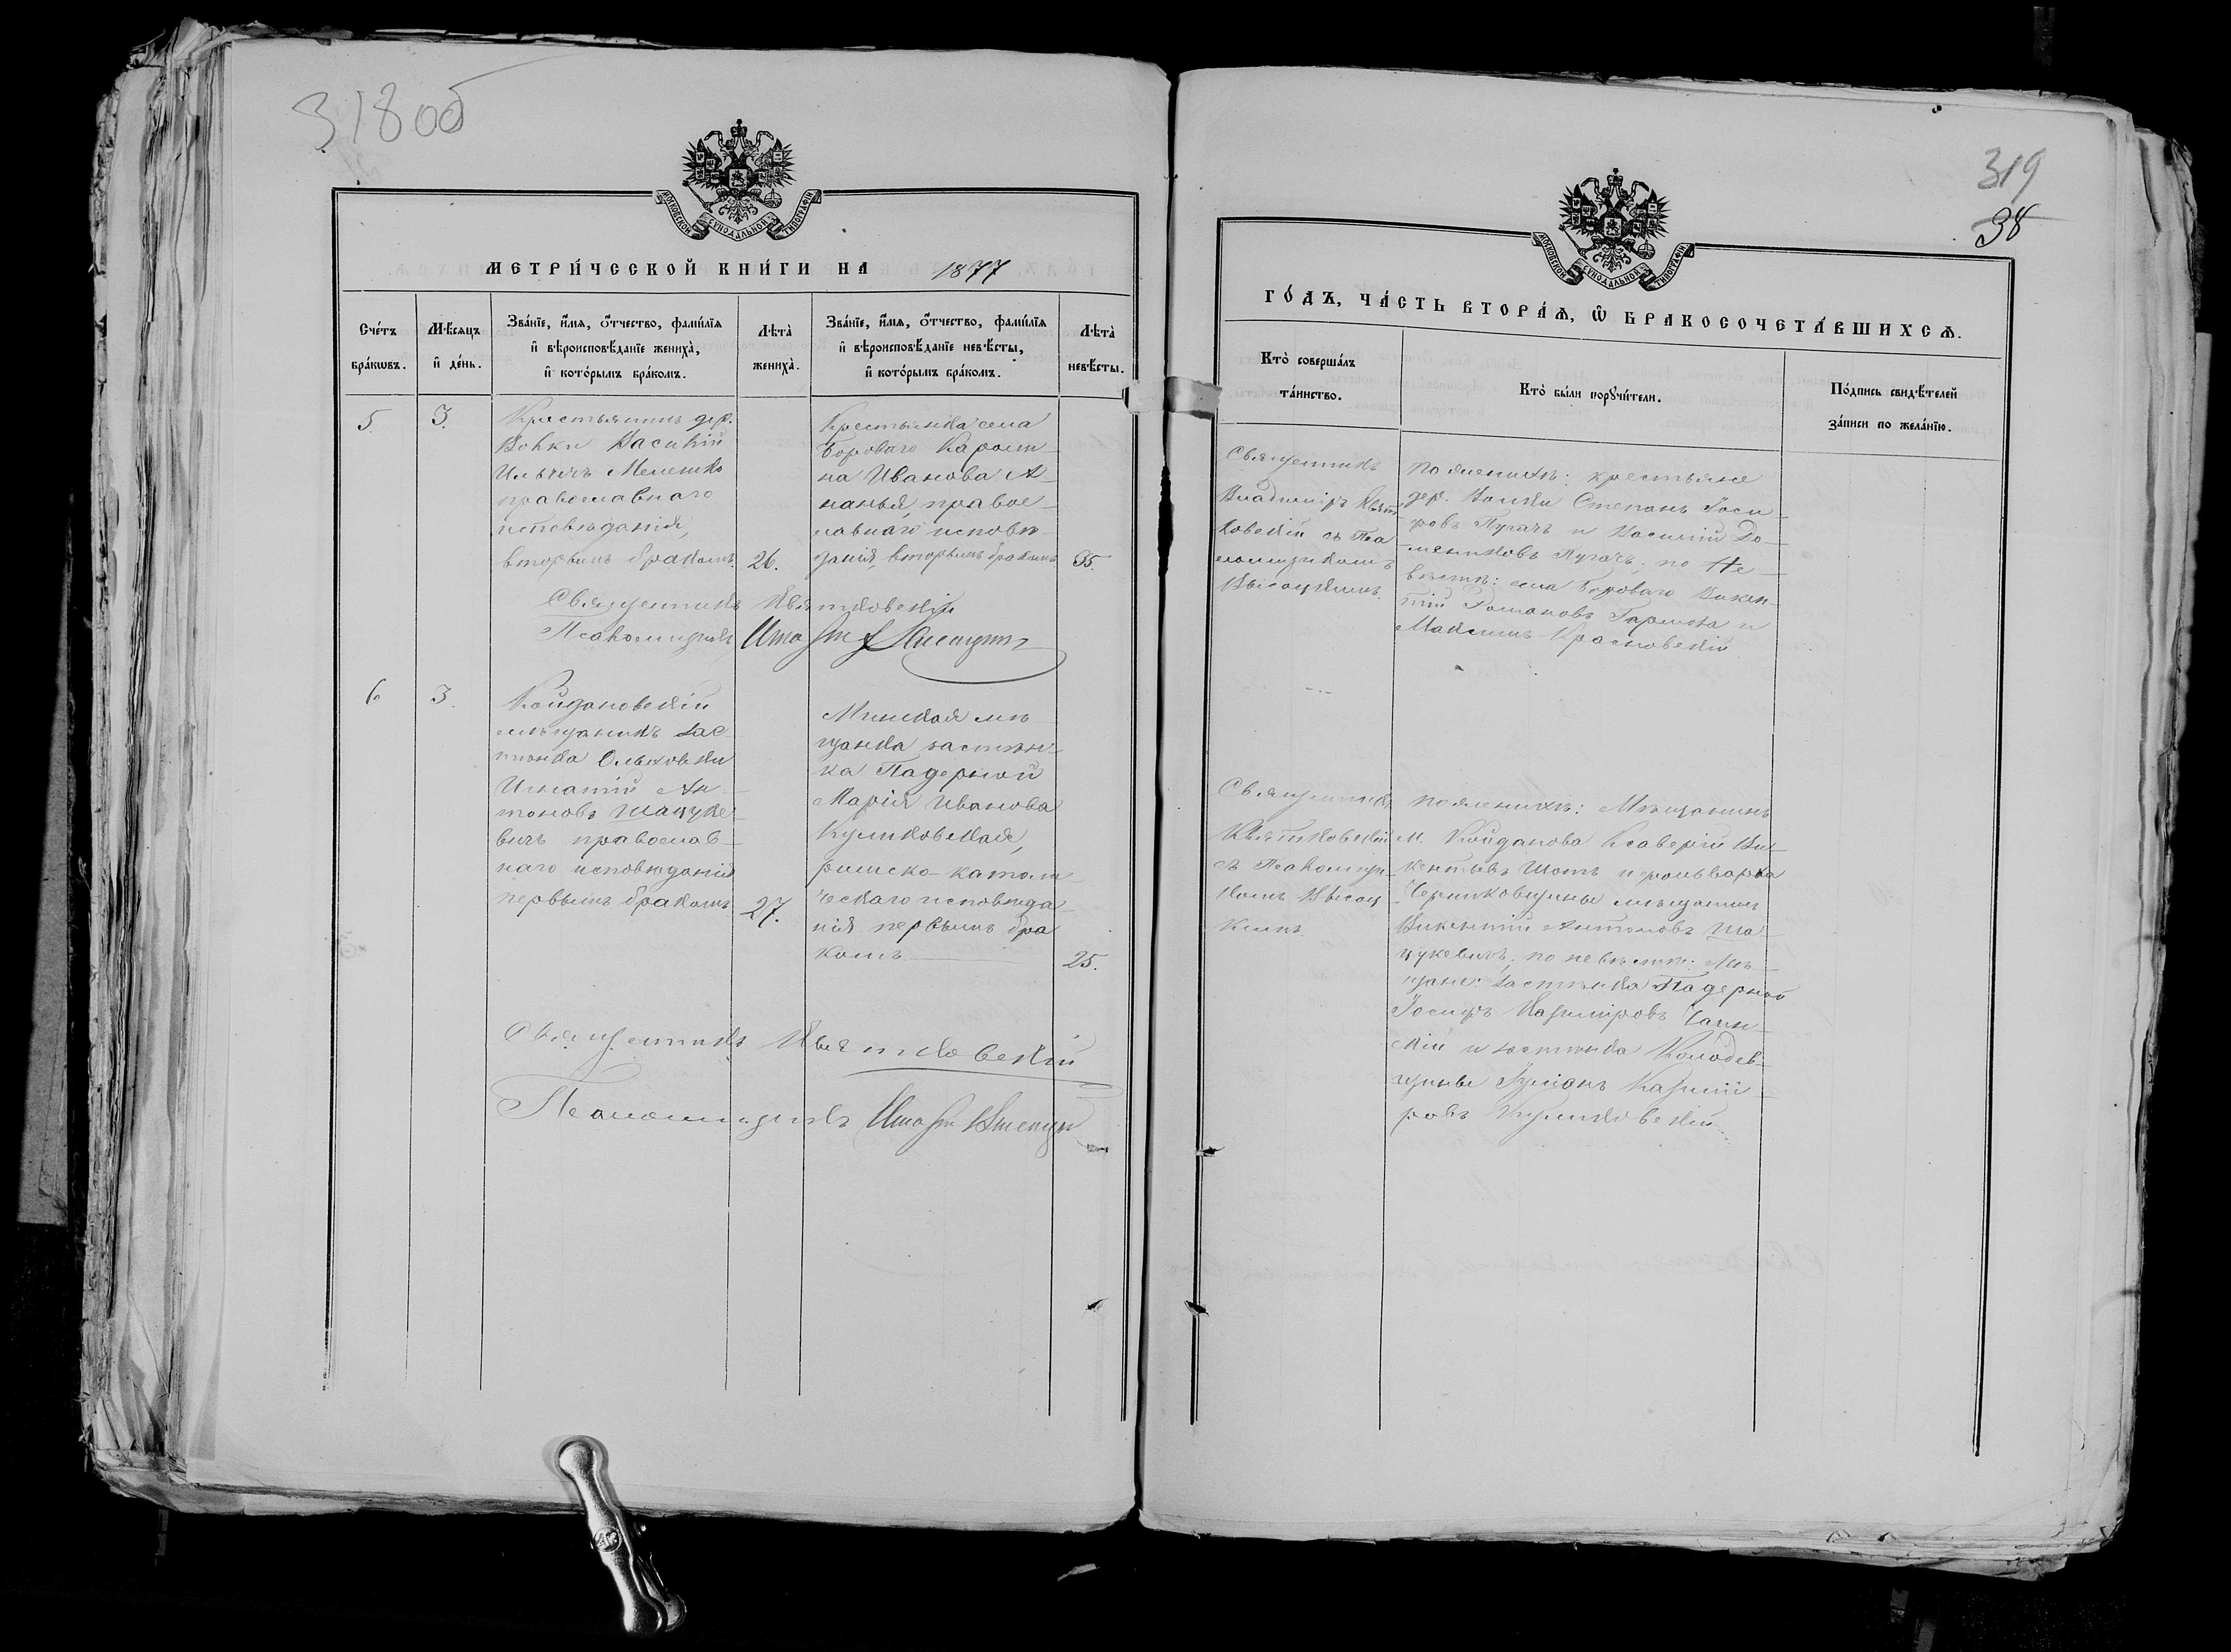 318 об
МОСКОВСКОЙ СУНОДАЛЬНОЙ ТИПОГРАФІИ
МЕТРИ́ЧЕСКОЙ КНИ́ГИ НА 1877
Сче́тъ бра́кѡвъ.
Мѣ́сяцъ и҆ де́нь.
Зва́нїе, и҆́мѧ, ѻ҆́тчество, фами́лїѧ
и҆ вѣроисповѣ́данїе жениха̀,
и҆ кото́рымъ бра́комъ.
Лѣта̀ жениха̀.
Зва́нїе, и҆́мѧ, ѻ҆́тчество, фами́лїѧ
и҆ вѣроисповѣ́данїе невѣ́сты,
и҆ кото́рымъ бра́комъ.
Лѣта̀ невѣ́сты.
5
3.
Крестьянинъ дер.
Василій
Ильичъ Мелешко
православнаго
исповѣданія,
вторымъ бракомъ.
26.
Крестьянка села
Борового Кароли-
на Иванова А-
нанья, правос-
лавнаго исповѣ-
данія, вторымъ бракомъ
35.
Священникъ Квятковскій
Псаломщикъ
6
3.
Койдановскій
мѣщанинъ зас-
тѣнка Ольховки
Игнатій Ан-
тоновъ Шацуке-
вичъ православ-
наго исповѣданія
первымъ бракомъ
27.
Минская мѣ-
щанка застѣн-
ка Падерной
Марія Иванова
Куликовская,
римско-католи-
ческаго исповѣда-
нія первымъ бра-
комъ.
25.
Священникъ Квятковскій
Псаломщикъ
319
38
МОСКОВСКОЙ СУНОДАЛЬНОЙ ТИПОГРАФІИ
ГО́ДЪ, ЧА́СТЬ ВТОРА́Ѧ, Ѡ҆ БРАКОСОЧЕТА́ВШИХСѦ.
Кто̀ соверша́лъ
та́инство.
Кто̀ бы́ли порꙋчи́тели.
По́дпись свидѣ́телей
за́писи по жела́нїю.
Священникъ
Владиміръ Квят-
ковскій съ Пса-
ломщикомъ
Высоцкимъ.
По женихѣ: крестьяне
дер. Степанъ Іоси-
фовъ Пугачъ и Василій До-
мениковъ Пугачъ; по не-
вѣстѣ: села Борового Викен-
тій Романовъ и
Максимъ Красновскій
Священникъ
Квятковскій
съ Псаломщи-
комъ Высоц-
кимъ.
По женихѣ: Мѣщанинъ
м. Койданова Ксаверій Ви-
кентьевъ и фольварка
мѣщанинъ
Викентій Антоновъ Ша-
цукевичъ; по невѣстѣ: Мѣ-
щане: застѣнка Падерной
Іосифъ Казиміровъ
и застѣнка
Казимі-
ровъ Куликовскій.